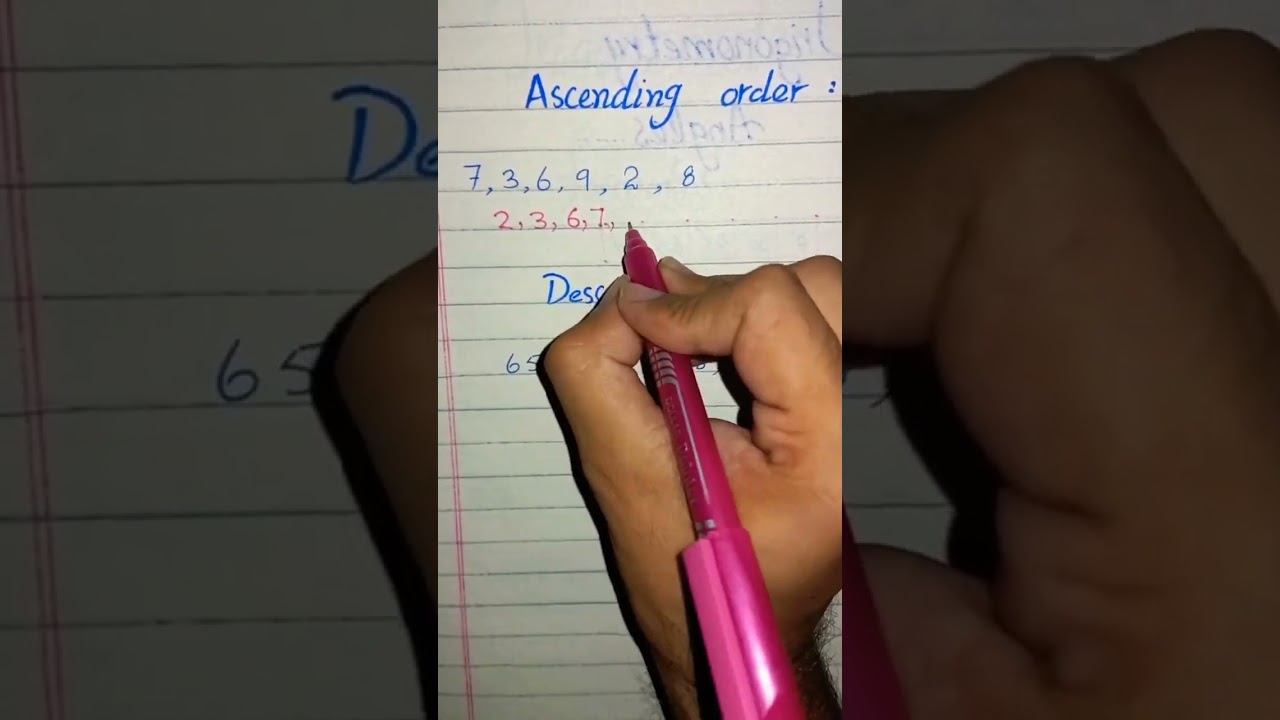 Ascending order :
7, 3, 6, 9, 2, 8
2, 3, 6, 7,